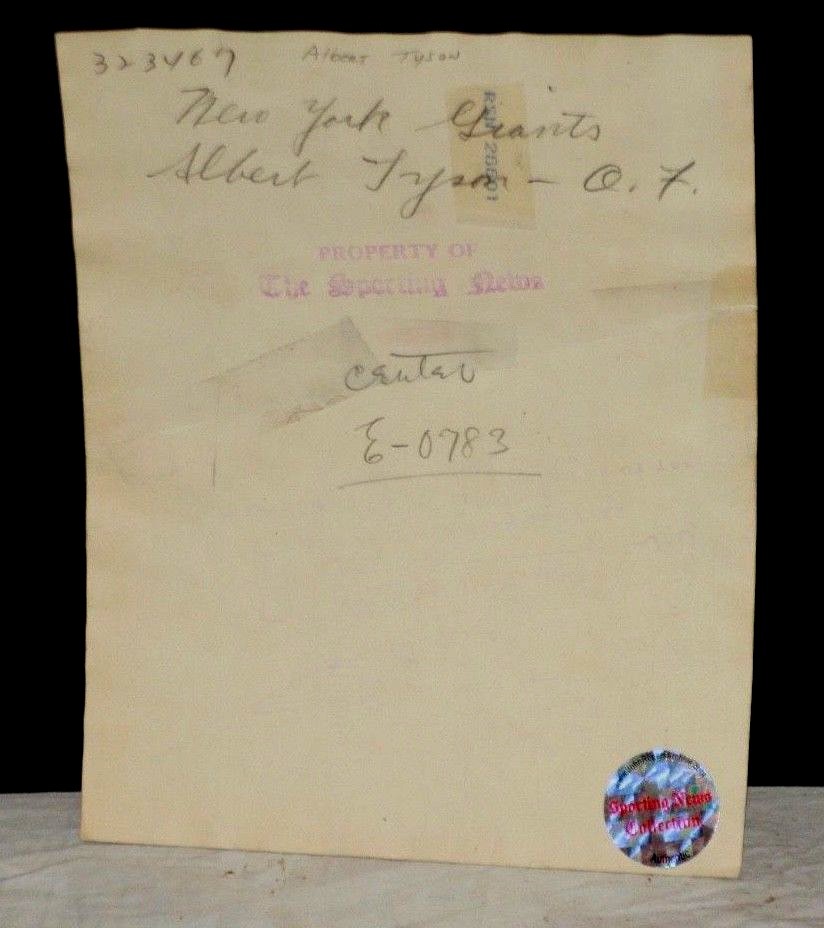 323467 Albert Tyson
New York Giants
Albert Tyson - O. F.
PROPERTY OF
The Sporting News
center
E-0783
Sporting News
Collection
Authentic